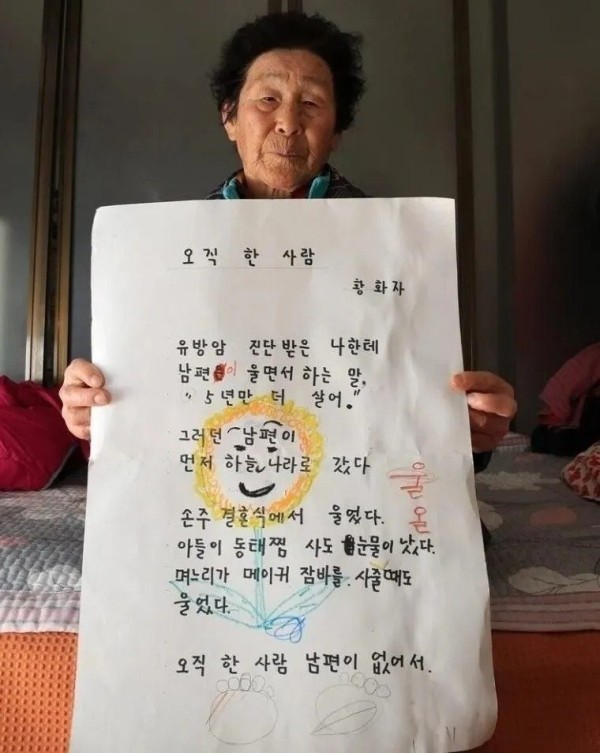 오직 한 사람
황화자
유방암 진단 받은 나한테
남편이 울면서 하는 말,
"5년만 더 살어."
그러던 남편이
먼저 하늘나라로 갔다
손주 결혼식에서 울었다.
아들이 동태찜 사도 눈물이 났다.
며느리가 메이커 잠바를 사줄 때도
울었다.
오직 한 사람 남편이 없어서.